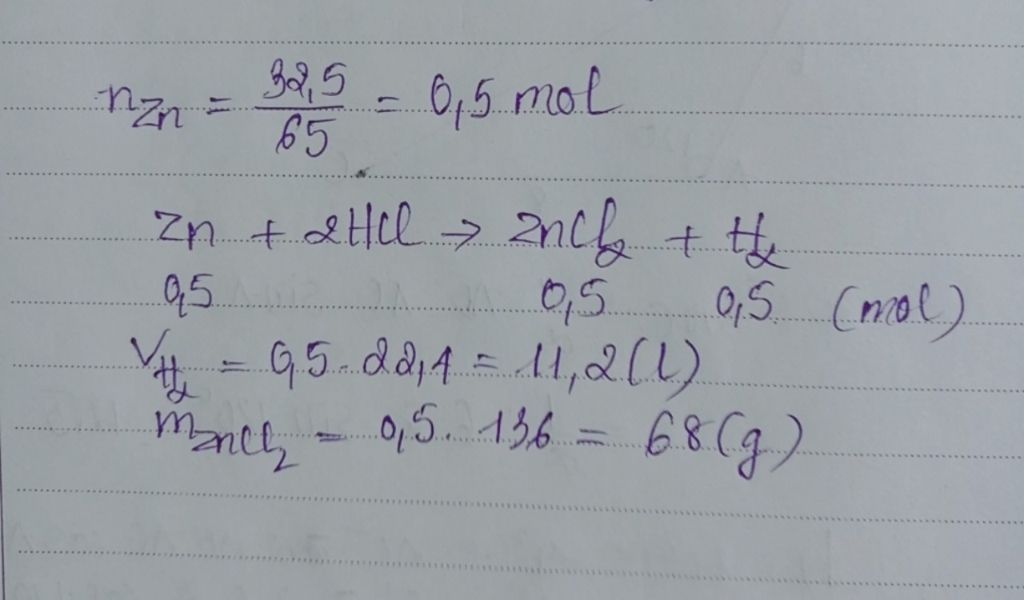 nZn = 32,5/65 = 0,5 mol
Zn + 2HCl → ZnCl₂ + H₂
0,5 0,5 0,5 (mol)
VH₂ = 0,5 . 22,4 = 11,2 (l)
mZnCl₂ = 0,5 . 136 = 68 (g)